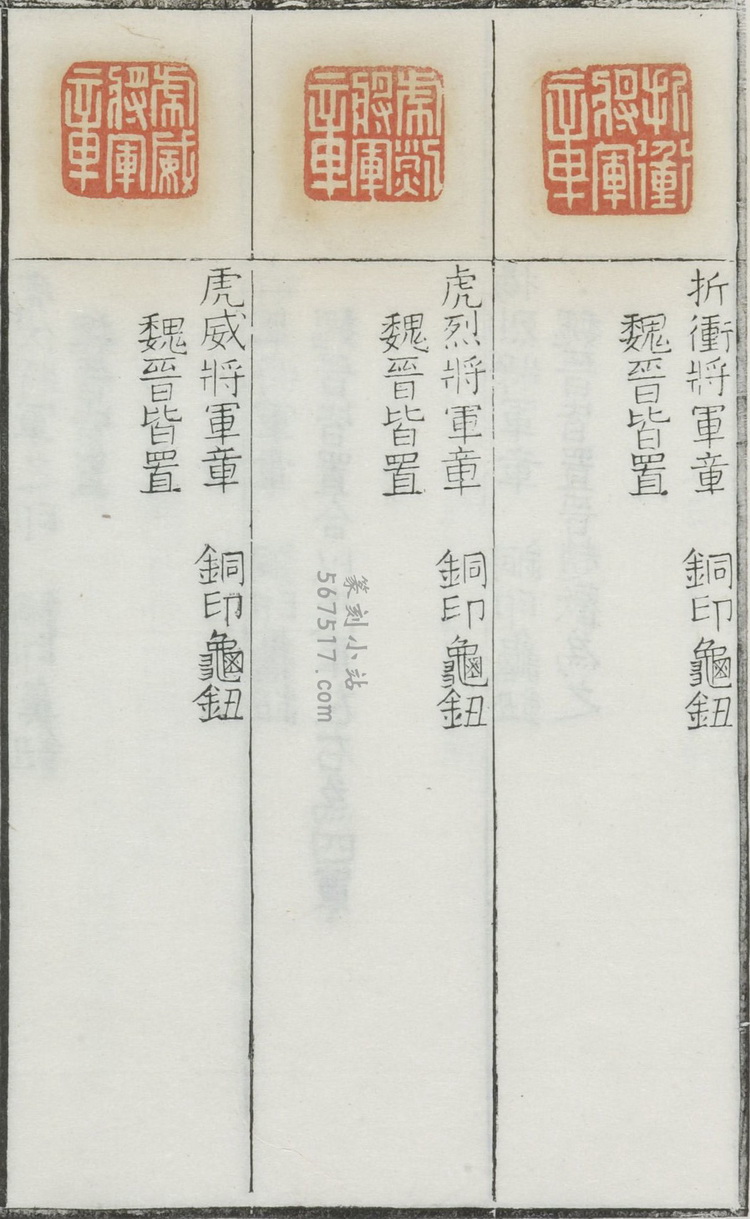 折衝將軍章
折衝將軍章 銅印龜鈕
魏晉皆置
虎烈將軍章
虎烈將軍章 銅印龜鈕
魏晉皆置
虎威將軍章
虎威將軍章 銅印龜鈕
魏晉皆置
篆刻小站
567517.com